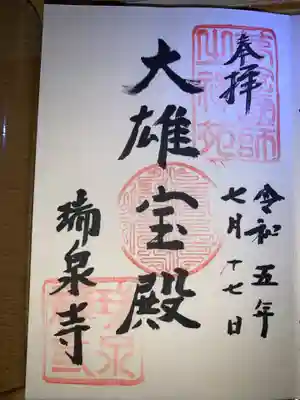 奉拝
令和五年
七月十七日
大雄宝殿
瑞泉寺